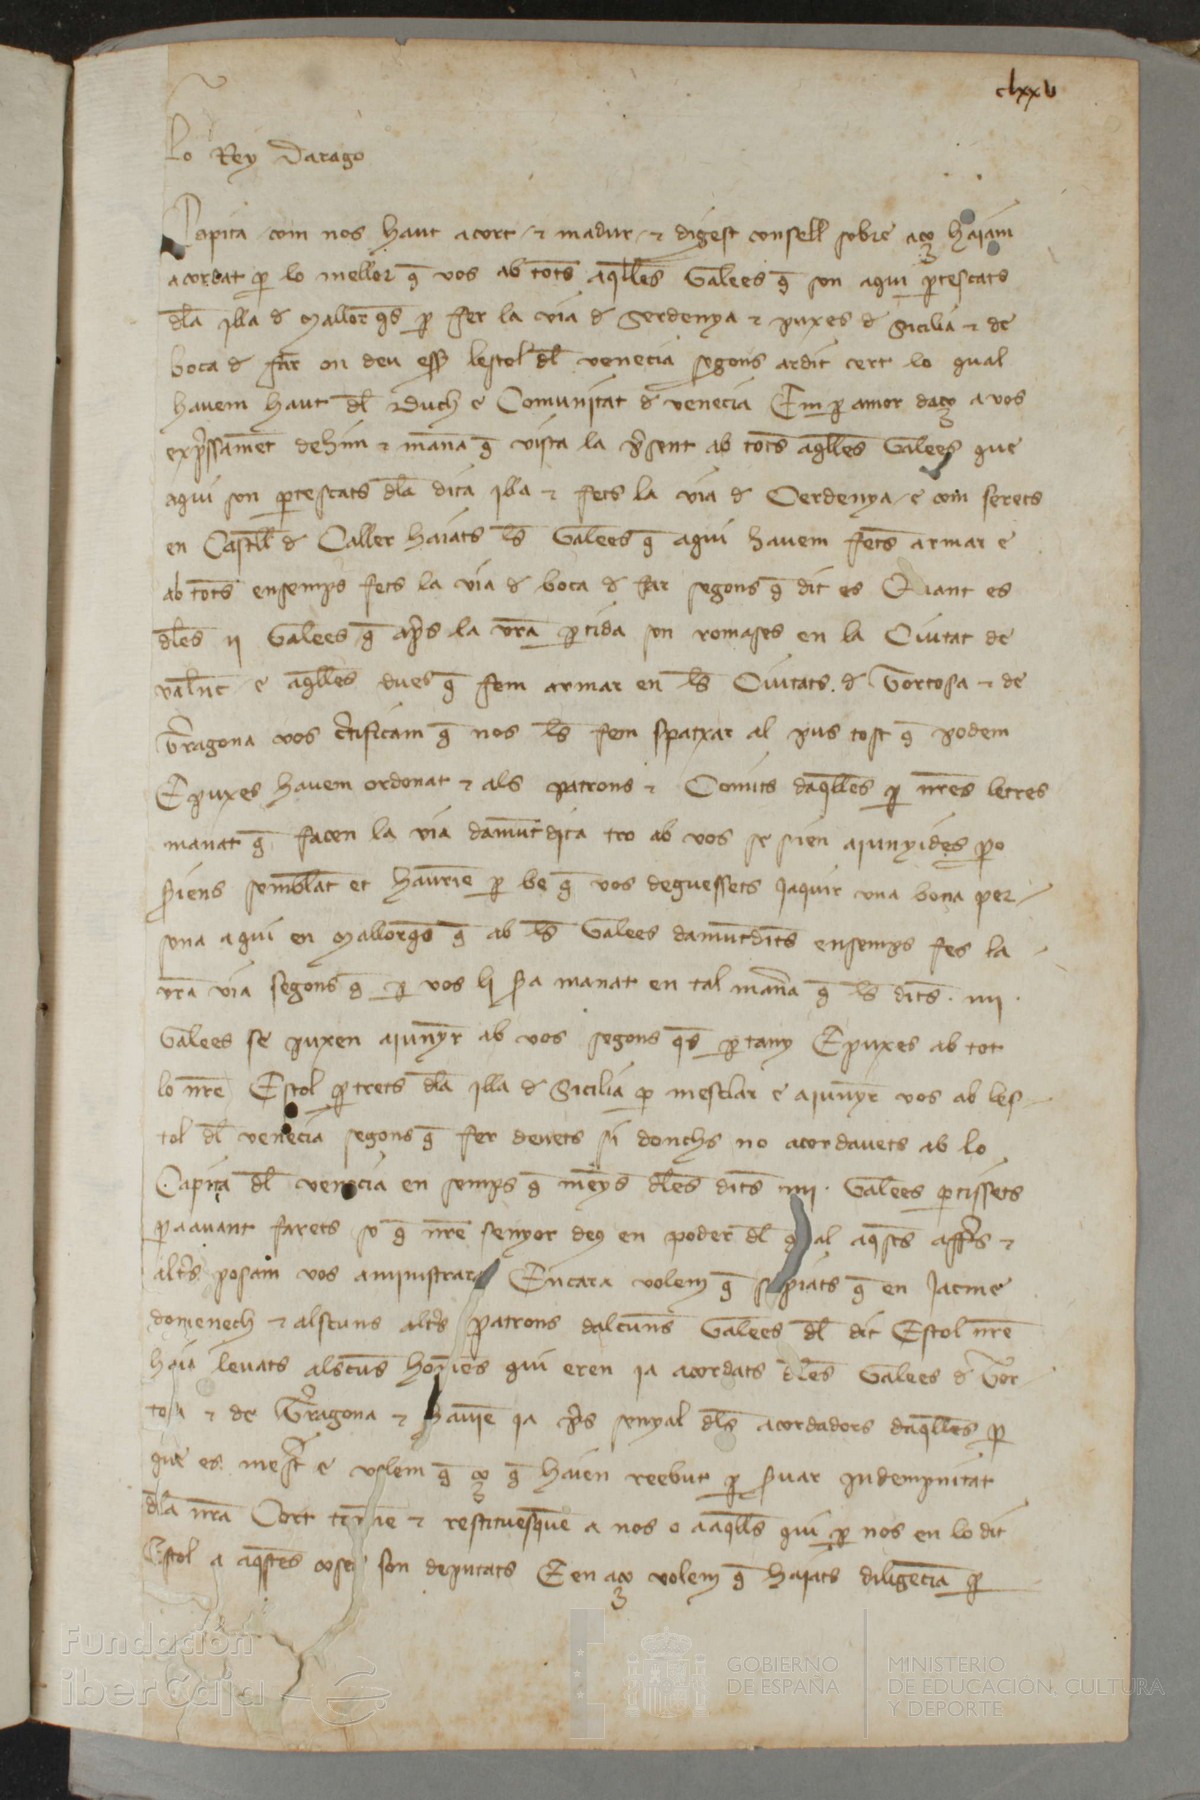 clxxv
Lo Rey Darago
Capita com nos haut acort / ⁊ madur / ⁊ digest consell sobre aço haiam
acordat p̱ lo mellor q̄ vos ab tots aq̄lles Galees q̄ son aqui p̱tescats
dl̄a illa d̄ Mallorq̄s p̱ fer la via d̄ Serdenya ⁊ puxes d̄ Sicilia ⁊ de
boca d̄ far on deu ess̄ lestol dl̄ venecia segons ardit cert lo qual
havem haut dl̄ Duch e Comunitat d̄ venecia Em p̱ amor daço a vos
exp̄ssamēt dehim ⁊ manā q̄ vista la p̄sent ab tots aq̄lles Galees que
aqui son p̱tescats dl̄a dita illa ⁊ fets la via d̄ Cerdenya / e com serets
en Castell d̄ Caller haiats l̄s Galees q̄ aqui havem fets armar e
ab tots ensemps fets la via d̄ boca d̄ far segons q̄ dit es Quant es
dl̄es ii Galees q̄ ap̄s la vr̄a p̱tida son romases en la Ciutat de
val̄nc̄ / e aq̄lles dues q̄ fem armar en l̄s Ciutats d̄ Tortosa ⁊ de
Tr̄ragona vos c̄tificam q̄ nos l̄s fem spatxar al pus tost q̄ podem
E puxes havem ordonat ⁊ als patrons ⁊ Comits daq̄lles p̱ nr̄es letres
manat q̄ facen la via damūtdita tro ab vos se sien aiunyides p̱o
siens semblāt et haurie p̱ be q̄ vos deguessets jaquir vna bona per-
sona aqui en Mallorq̄s q̄ ab l̄s Galees damūtdits ensemps fes la
vr̄a via segons q̄ p̱ vos li sra manat en tal man̄a q̄ l̄s dits . iiii .
Galees se puxen aiunyr̄ ab vos segons q̄s p̱tany E puxes ab tot
lo nr̄e Estol p̱trets dl̄a illa d̄ Sicilia p̱ mesclar e aiunyr̄ vos ab les-
tol dl̄ venecia segons q̄ fer devets si donchs no acordavets ab lo
Capita dl̄ venecia en semps q̄ mēys dl̄es dits iiii . Galees p̱tissets
p̱ aavant farets so q̄ nr̄e senyor deus en poder dl̄ qual aq̄sts aff̄s ⁊
alt̄s posam vos aministrara Encara volem q̄ sapiats q̄ en Jacme
domenech ⁊ alscuns alt̄s patrons dalcuns Galees dl̄ dit Estol nr̄e
haia levats alscūs homēs qui eren ia acordats dl̄es Galees d̄ Tor-
tosa ⁊ de Tr̄ragona ⁊ havie ia p̄s senyal dl̄s acordadors daq̄lles p̱
que es mest̄ e volem q̄ ço q̄ haien reebut p̱ s̄var indempnitat
dl̄a nr̄a Cort ⁊ restituesquē a nos o a aq̄lls qui p̱ nos en lo dit
Estol a aq̄stes coses son deputats E en aço volem q̄ haiats diligēcia p̱
Fundación
iberCaja
GOBIERNO
DE ESPAÑA
MINISTERIO
DE EDUCACIÓN, CULTURA
Y DEPORTE